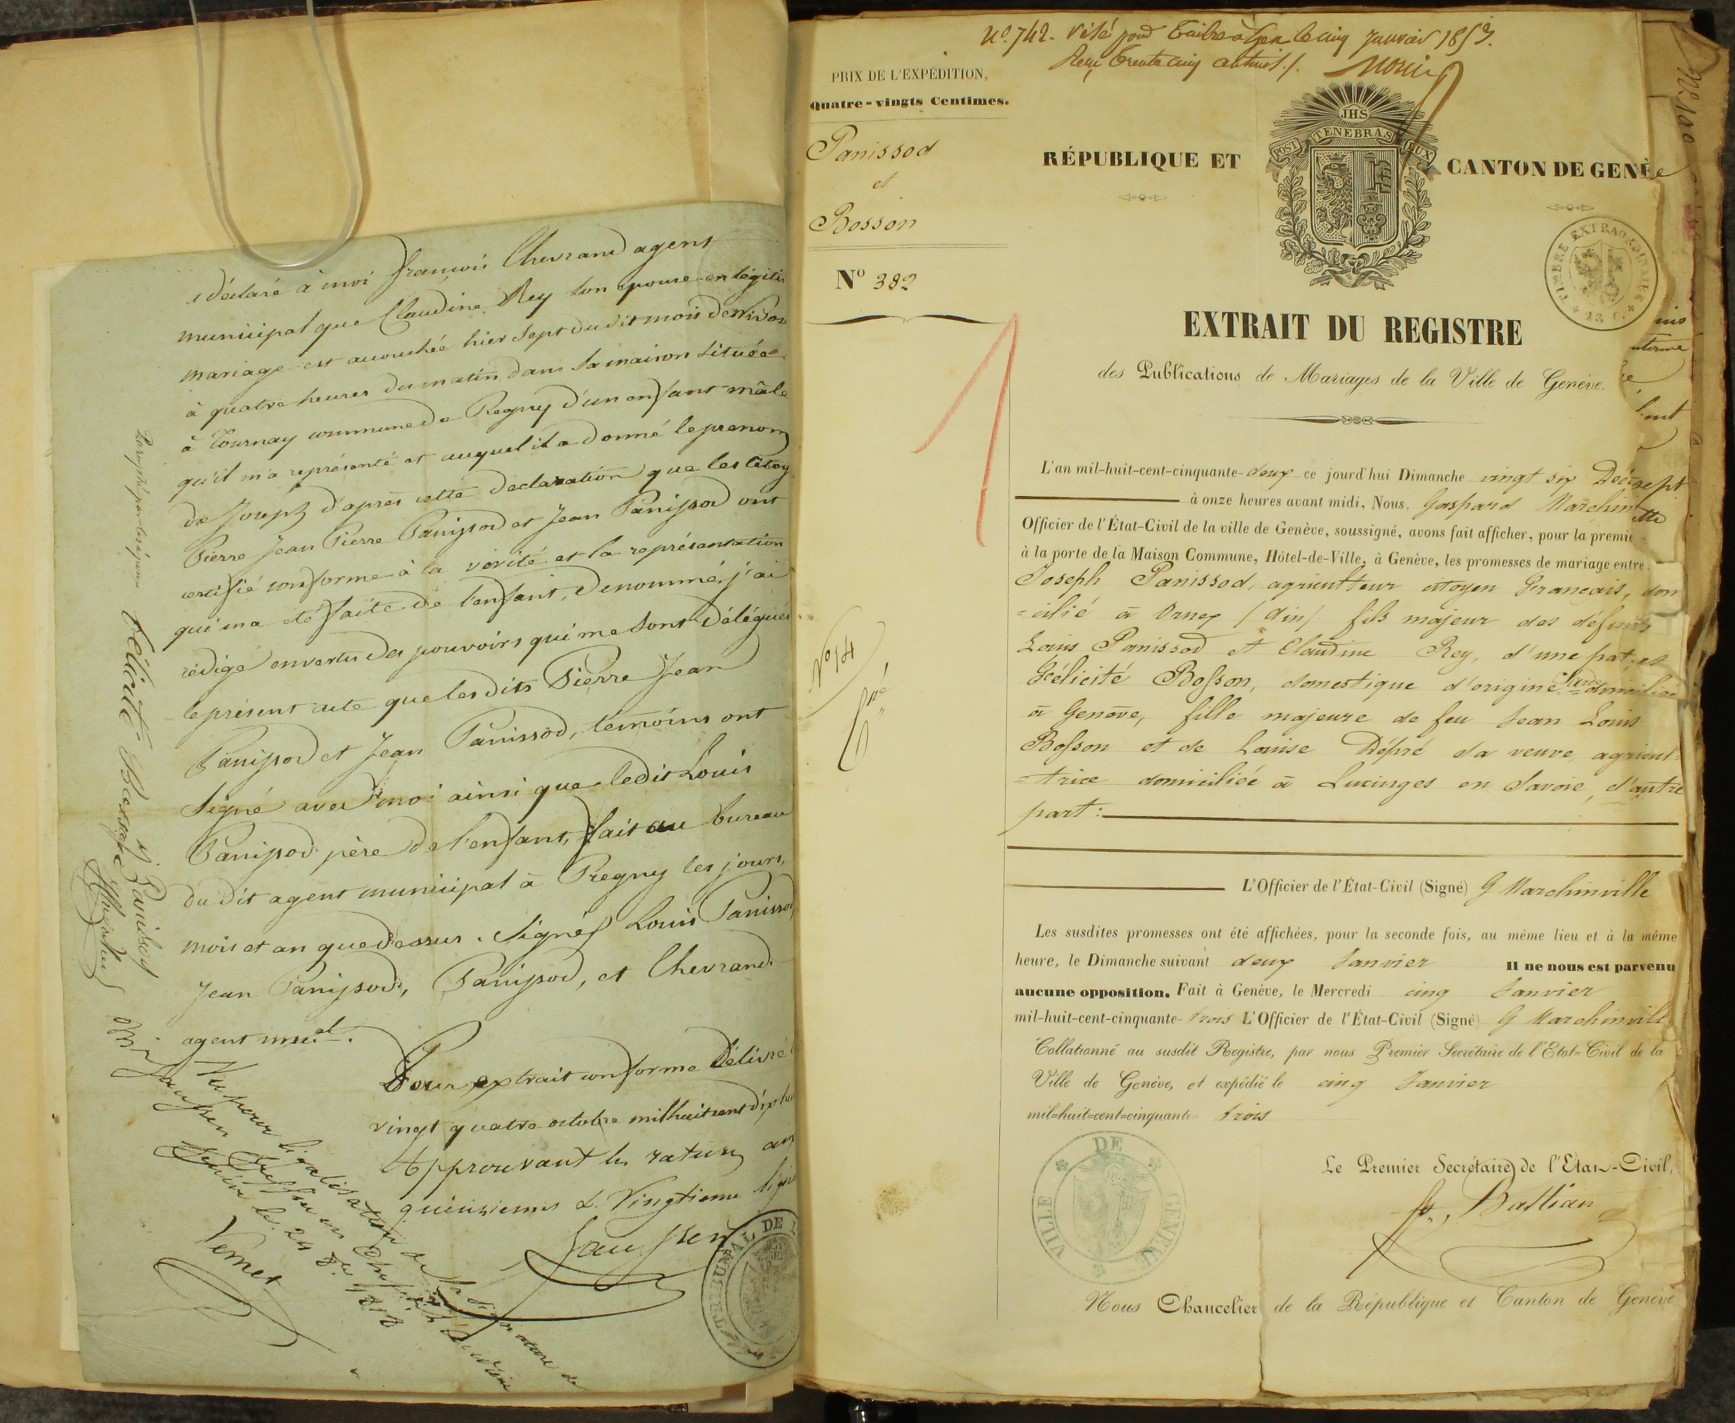 déclaré à moi françois Chevrand agent
municipal que Claudine Rey son epouse en légiti
mariage est accouchée hier sept du dit mois de
à quatre heures du matin dans sa maison située
à Tournay commune de Pregny d'un enfant mâle
qu'il m'a représenté et auquel il a donné le prenom
de Joseph d'après cette declaration que les citoy
Pierre Jean Pierre Panissod et Jean Panissod ont
certifié conforme à la vérité et la représentation
qui m'a été faite de l'enfant denommé, j'ai
rédigé en vertu des pouvoirs qui me sont délégués
le présent acte que les dits Pierre Jean
Panissod et Jean Panissod, temoins ont
signé avec moi ainsi que le dit Louis
Panissod père de l'enfant, fait au bureau
du dit agent municipal à Pregny les jours,
mois et an que dessus. signés Louis Panissod
Jean Panissod, Panissod, et Chevrand
agent mual.
Pour extrait conforme Délivré
vingt quatre octobre mil huit cent dix hu
Approuvant les ratures aux
quinzieme & Vingtieme lignes
Vu pour légalisation de la signature de
Genève le 24 8bre 1818
Vernet
TRIBUNAL DE
Paraphé par les époux
félicité Bosson
j Panissod
No. 742. Visé pour timbre à Gex le cinq Janvier 1853.
Reçu trente cinq centimes
PRIX DE L'EXPÉDITION,
Quatre-vingts Centimes.
Panissod
et
Bosson
No 382
No 14
JHS
POST TENEBRAS LUX
RÉPUBLIQUE ET CANTON DE GENÈ
TIMBRE EXTRAORDINAIRE
EXTRAIT DU REGISTRE
des Publications de Mariages de la Ville de Genève.
L'an mil-huit-cent-cinquante-deux ce jourd'hui Dimanche vingt six Déc
à onze heures avant midi, Nous, Gaspard Marchin
Officier de l'État-Civil de la ville de Genève, soussigné, avons fait afficher, pour la premiè
à la porte de la Maison Commune, Hôtel-de-Ville, à Genève, les promesses de mariage entre
Joseph Panissod, agriculteur citoyen français, dom
-cilié à Ornex (Ain) fils majeur des défunts
Louis Panissod et Claudine Rey, d'une part; et
Félicité Bosson, domestique d'origine Sarde domiciliée
à Genève, fille majeure de feu Jean Louis
Bosson et de Louise Dépré sa veuve, agricul-
-trice domiciliée à Lucinges en Savoie, d'autre
part:
L'Officier de l'État-Civil (Signé) G Marchinville
Les susdites promesses ont été affichées, pour la seconde fois, au même lieu et à la même
heure, le Dimanche suivant deux Janvier Il ne nous est parvenu
aucune opposition. Fait à Genève, le Mercredi cinq Janvier
mil-huit-cent-cinquante-trois L'Officier de l'État-Civil (Signé) G Marchinvill
Collationné au susdit Registre, par nous Premier Secrétaire de l'Etat-Civil de la
Ville de Genève, et expédié le cinq Janvier
mil-huit-cent-cinquante-trois
VILLE DE GENÈVE
Le Premier Secrétaire de l'Etat-Civil,
Nous Chancelier de la République et Canton de Genève